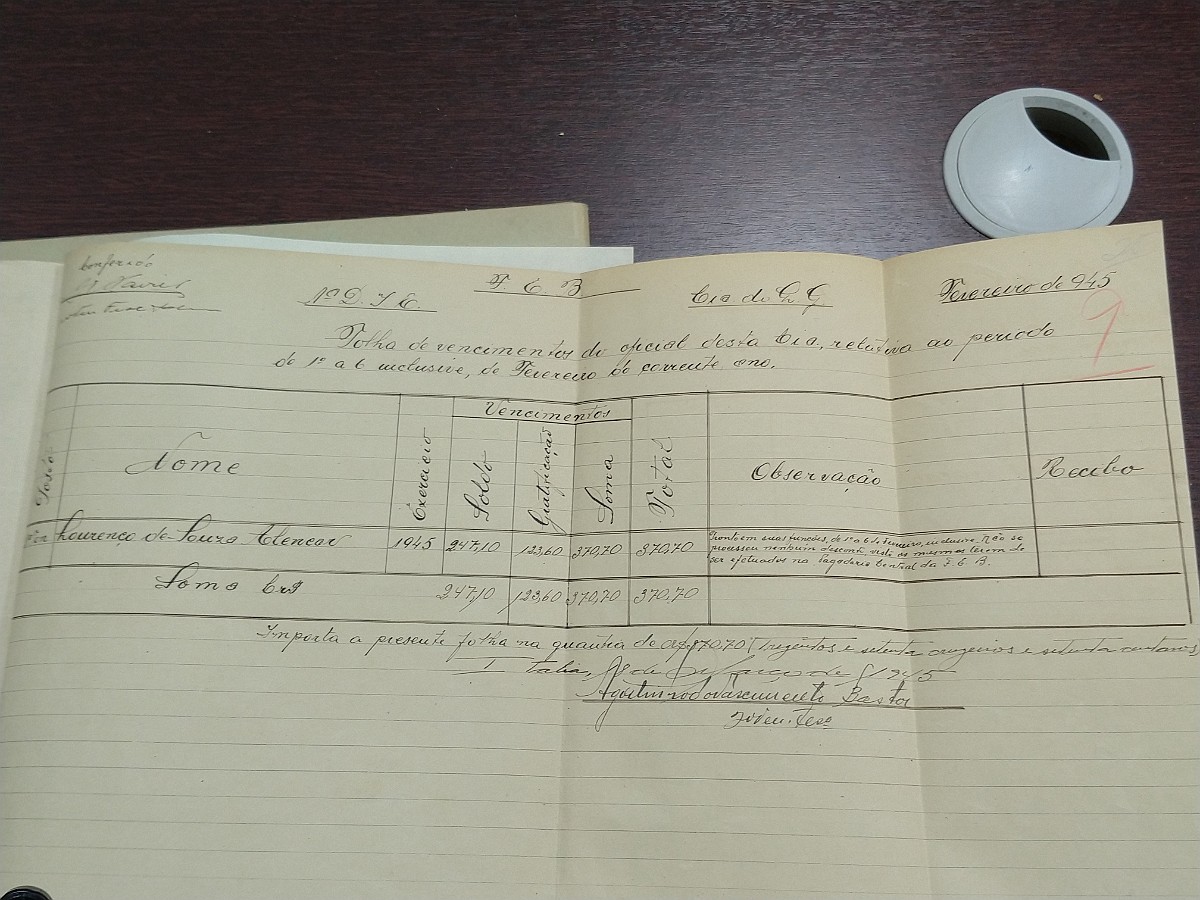 Conferido
F. E. B
1ª D. I E.
Cia do Q. G
Fevereiro de 945
Folha de vencimentos do oficial desta Cia, relativa ao periodo
de 1º a 6 inclusive, de Fevereiro do corrente ano.
Posto
Nome
Exercicio
Vencimentos
Soldo
Gratificação
Soma
Total
Observação
Recibo
Lourenço de Souza Alencar 1945 247,10 123,60 370,70 370,70
Pronto em suas funções, de 1º a 6 de Fevereiro, inclusive. Não se
processou nenhum desconto visto os mesmos terem de
ser efetuados na Pagadoria Central da F. E. B.
Soma Cr$ 247,10 123,60 370,70 370.70
Importa a presente folha na quantia de Cr$ 370,70 (trezentos e setenta cruzeiros e setenta centavos
Italia, de Março de 1945
Bastos